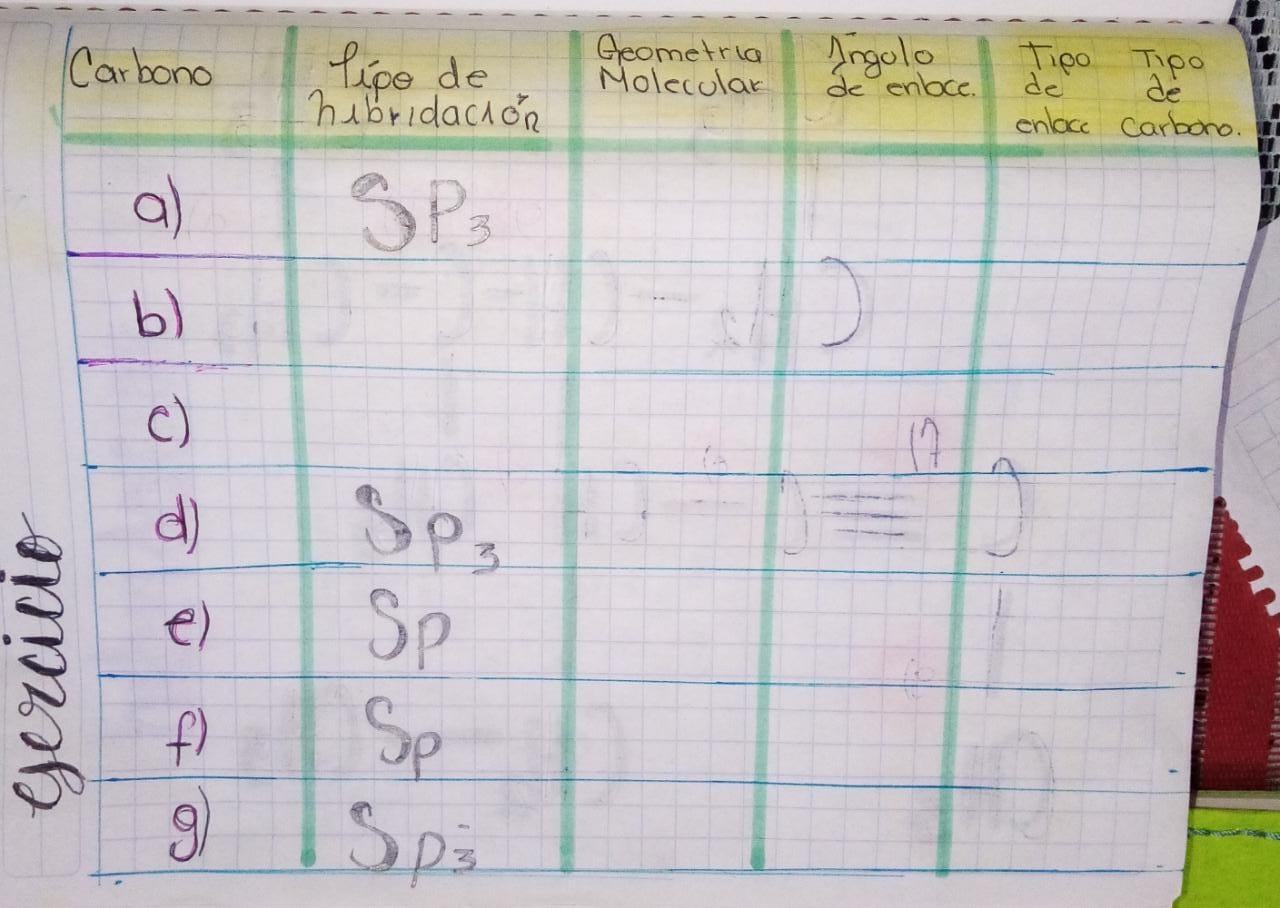 Carbono
Tipo de
hibridación
Geometria
Molecular
Àngolo
de enlace.
Tipo
de
enlace
Tipo
de
Carbono.
a) SP3
b)
c)
d) Sp3
e) Sp
f) Sp
g) Sp3
ejercicio